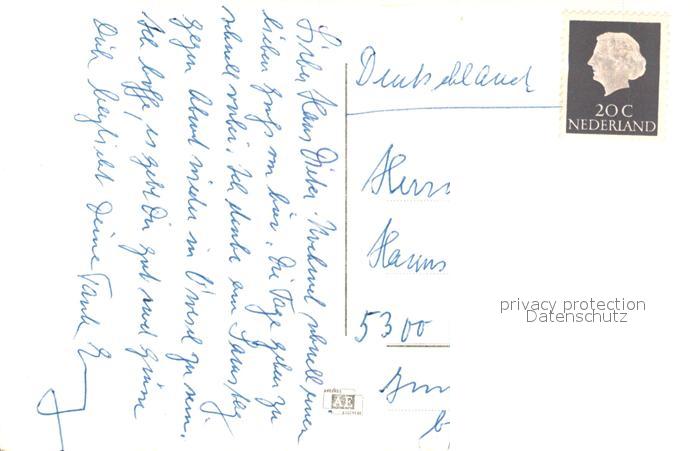 Lieber Hans Dieter. Nochmal schnell einen
lieben Gruß von hier. Die Tage gehen zu
schnell vorbei. Ich denke am Samstag
gegen Abend wieder in zu sein.
Ich hoffe, es geht Dir gut und Grüße
Dich herzlichst Deine Tante E.
Deutschland
20 C
NEDERLAND
Herrn
Hanns
5300
privacy protection
Datenschutz
AE